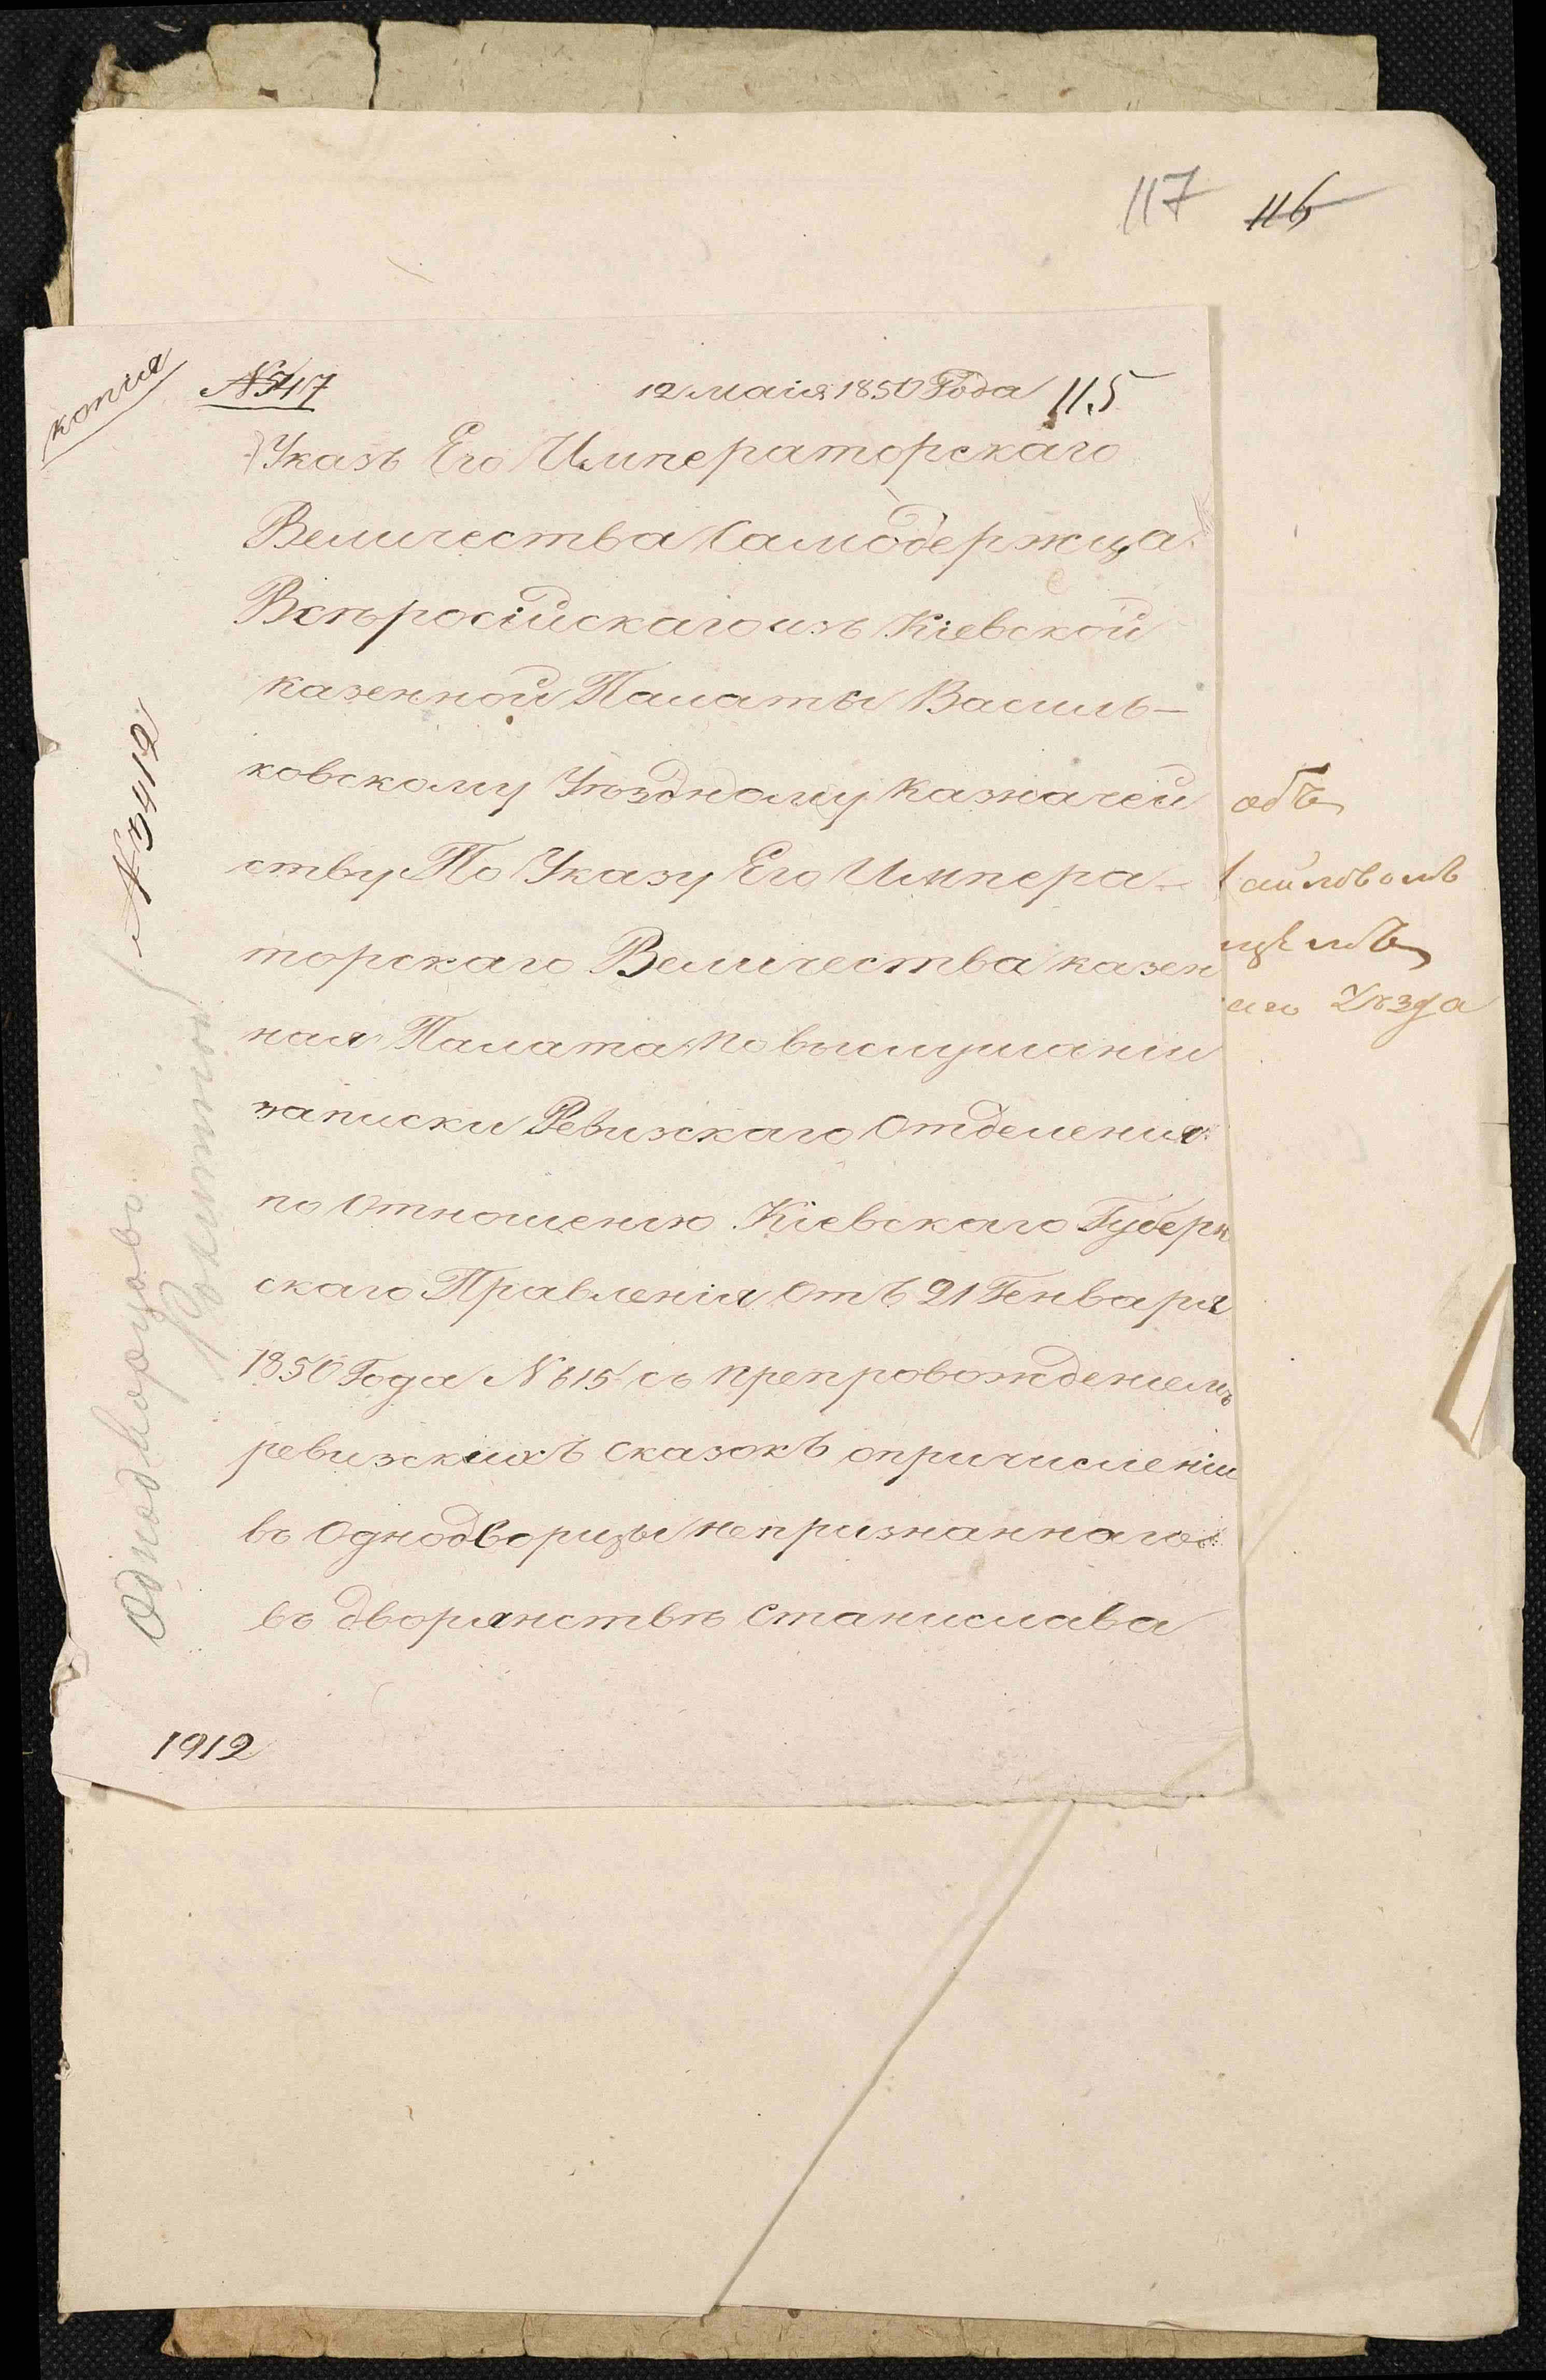 117 116
копия
№ 747 12 маія 1850 Года 115
Указъ Его Императорскаго
Величества Самодержца
Всѣросійскаго изъ Кіевской
казенной Палаты Василь-
ковскому Уѣздному Казначей
ству По Указу Его Импера-
торскаго Величества казен
ная Палата по выслушании
записки Ревизскаго Отделения
по Отношению Кіевскаго Губерн
скаго Правленія Отъ 21 Генваря
1850 Года № 615 съ препровождениемъ
ревизскихъ сказокъ опричислении
въ Однодворцы непризнаннаго
въ дворянствѣ Станислава
1912
№ 3412
Однодворцовъ
объ
Уѣзда